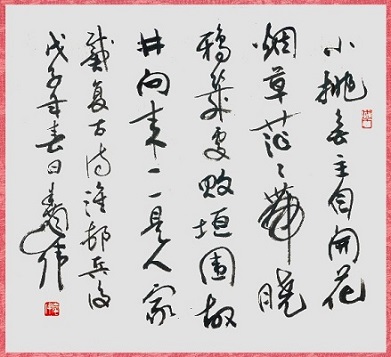 小桃無主自開花
烟草茫々帶曉
鴉幾處敗垣圍故
井向來一一是人家
戴復古詩淮邨兵後
戊子年春日